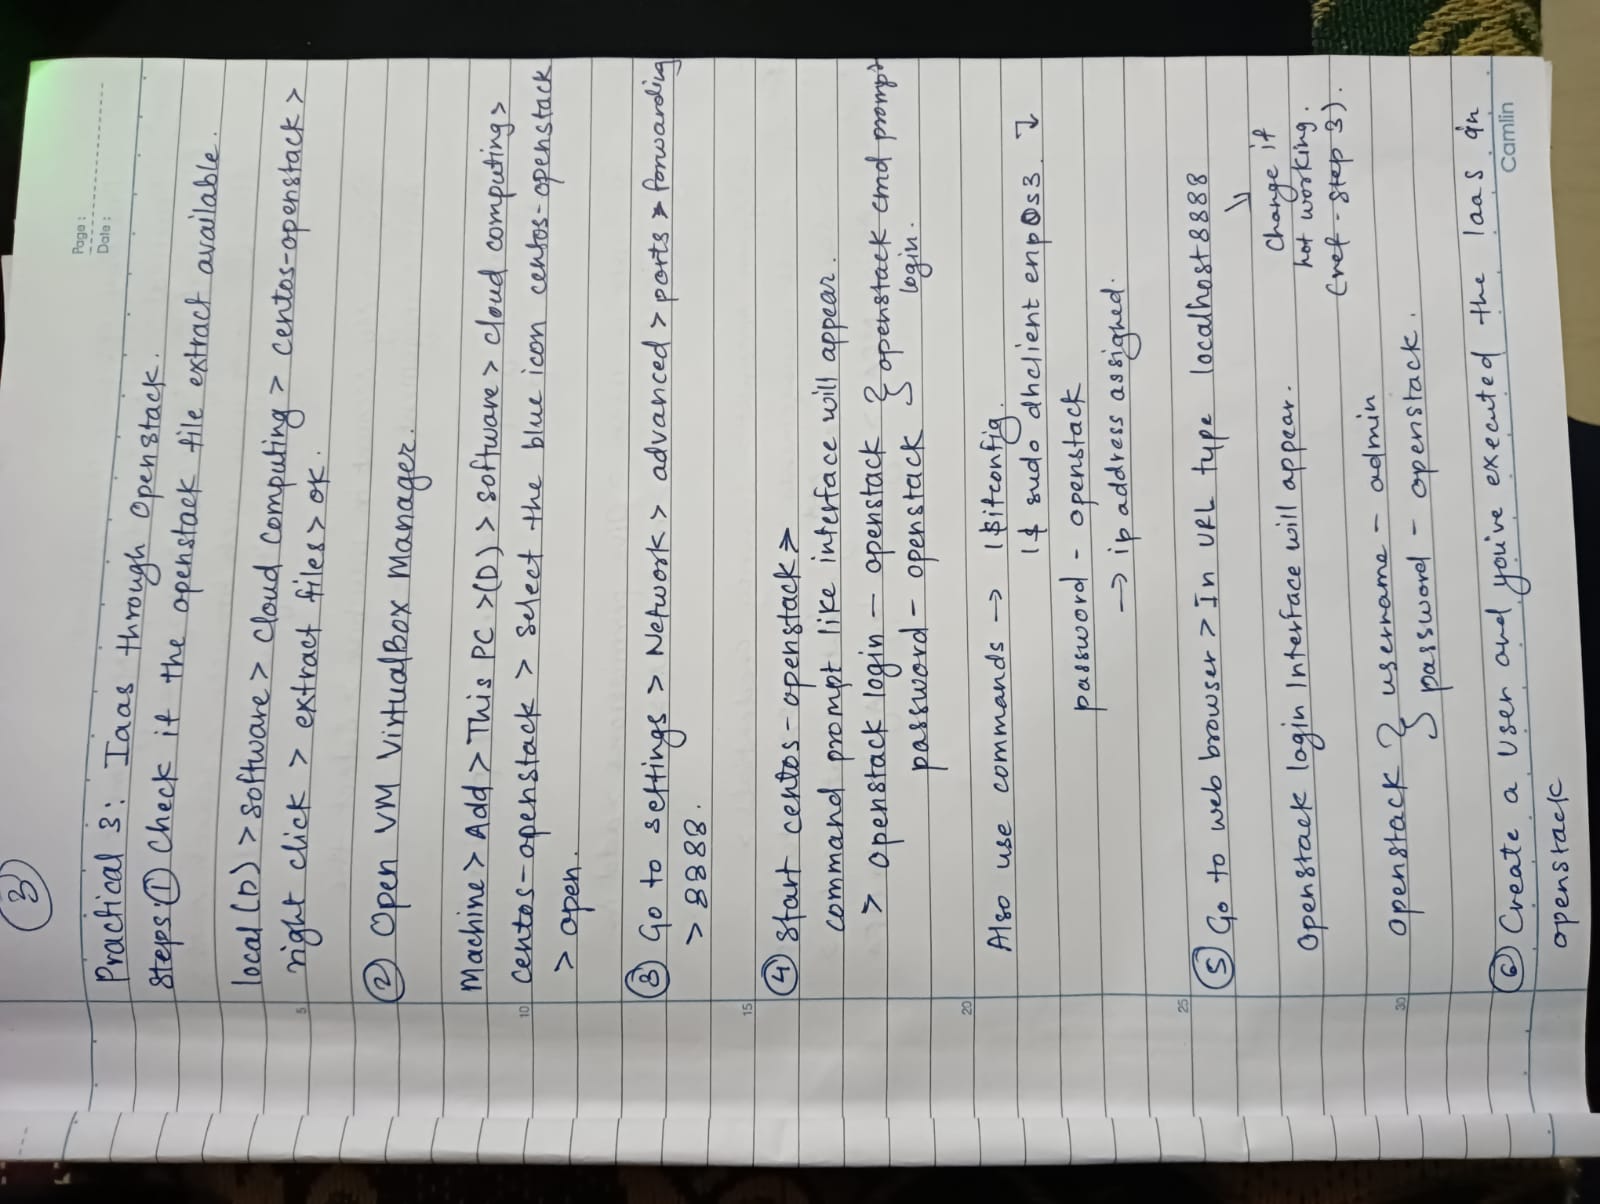 3
Page:
Date:
Practical 3: Iaas through Openstack.
Steps: ① Check if the openstack file extract available.
local (D) > software > cloud computing > centos-openstack >
right click > extract files > ok.
② Open VM VirtualBox Manager.
Machine > Add > This PC > (D) > software > cloud computing >
centos-openstack > select the blue icon centos-openstack
> open.
③ Go to settings > Network > advanced > ports > forwarding
> 8888.
④ Start centos-openstack >
command prompt like interface will appear.
> openstack login - openstack } openstack cmd prompt
password - openstack } login.
Also use commands → 1$ifconfig.
1$ sudo dhclient enp0s3. ↓
password - openstack
→ ip address assigned.
⑤ Go to web browser > In URL type localhost8888
Openstack login Interface will appear.
change it
not working.
(ref - step 3).
openstack { username - admin
password - openstack.
⑥ Create a User and you've executed the Iaas in
openstack
5
10
15
20
25
30
Camlin